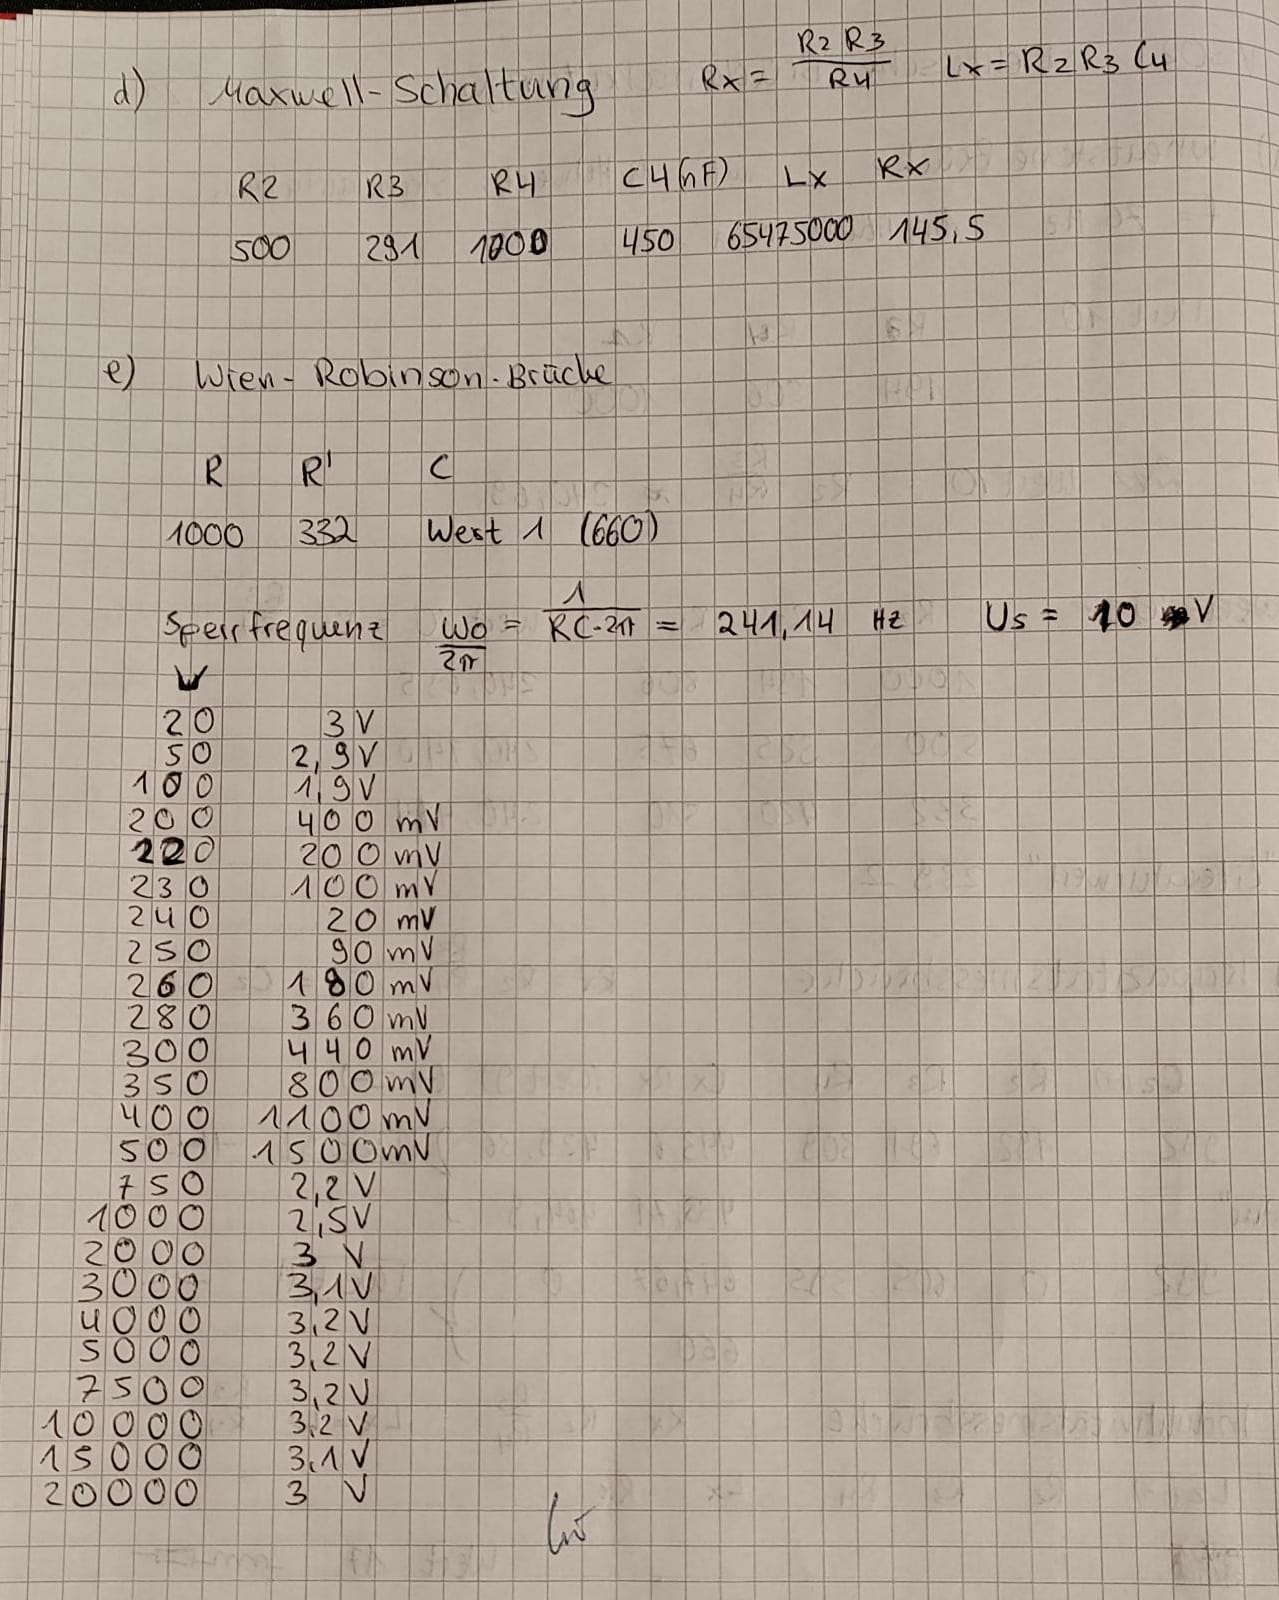 d) Maxwell-Schaltung Rx = R2 R3 / R4 Lx = R2 R3 C4
R2 R3 R4 C4(nF) Lx Rx
500 291 1000 450 65475000 145,5
e) Wien-Robinson-Brücke
R R' C
1000 332 Wert 1 (660)
Sperrfrequenz ω0 / 2π = 1 / RC·2π = 241,14 Hz Us = 10 V
20 3 V
50 2,9V
100 1,9V
200 400 mV
220 200 mV
230 100 mV
240 20 mV
250 90 mV
260 180 mV
280 360 mV
300 440 mV
350 800 mV
400 1100 mV
500 1500 mV
750 2,2 V
1000 2,5V
2000 3 V
3000 3,1V
4000 3,2 V
5000 3,2 V
7500 3,2V
10000 3,2 V
15000 3,1 V
20000 3 V